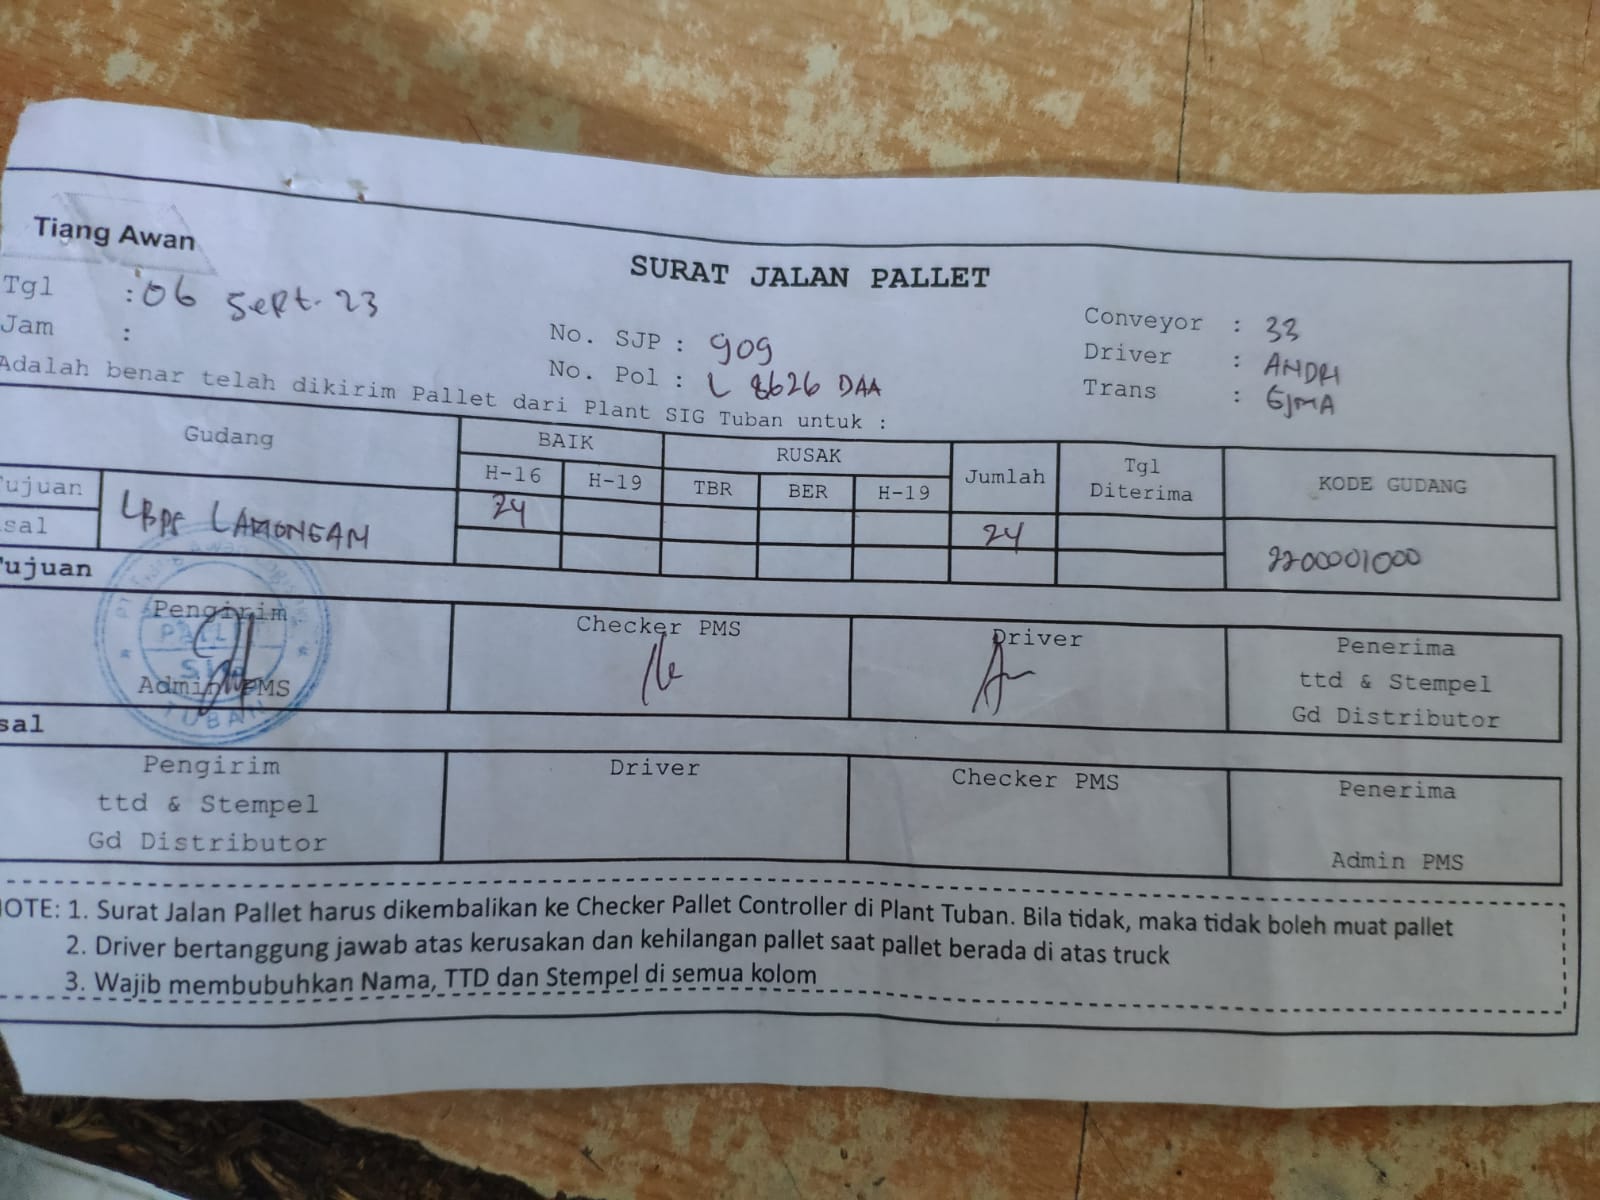 Tiang Awan
SURAT JALAN PALLET
Tgl : 06 Sept. 23
Jam :
No. SJP : 909
No. Pol : L 8626 DAA
Conveyor : 33
Driver : ANDRI
Trans : GJMA
Adalah benar telah dikirim Pallet dari Plant SIG Tuban untuk :
Gudang BAIK RUSAK Jumlah Tgl Diterima KODE GUDANG
H-16 H-19 TBR BER H-19
ujuan LBPC LAMONGAN 24 24 2200001000
sal
ujuan
Pengirim Checker PMS Driver Penerima
ttd & Stempel
Admin PMS Gd Distributor
PALLET
TUBAN
sal
Pengirim Driver Checker PMS Penerima
ttd & Stempel
Gd Distributor Admin PMS
NOTE: 1. Surat Jalan Pallet harus dikembalikan ke Checker Pallet Controller di Plant Tuban. Bila tidak, maka tidak boleh muat pallet
2. Driver bertanggung jawab atas kerusakan dan kehilangan pallet saat pallet berada di atas truck
3. Wajib membubuhkan Nama, TTD dan Stempel di semua kolom